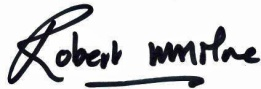 Robert Milne